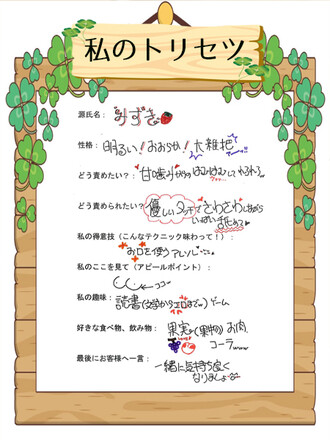 私のトリセツ
源氏名： みずき
性格： 明るい！おおらか！大雑把
どう責めたい？： 甘噛みからの
どう責められたい？： 優しいタッチでさわさわしながら
いっぱい舐める
私の得意技（こんなテクニック味わって！）：
お口を使うアレソレ
私のここを見て（アピールポイント）：
←ココ
私の趣味： 読書(文学からエロまでw) ゲーム
好きな食べ物、飲み物： 果実(果物) お肉
コーラwww
最後にお客様へ一言： 一緒に気持ち良く
なりましょ